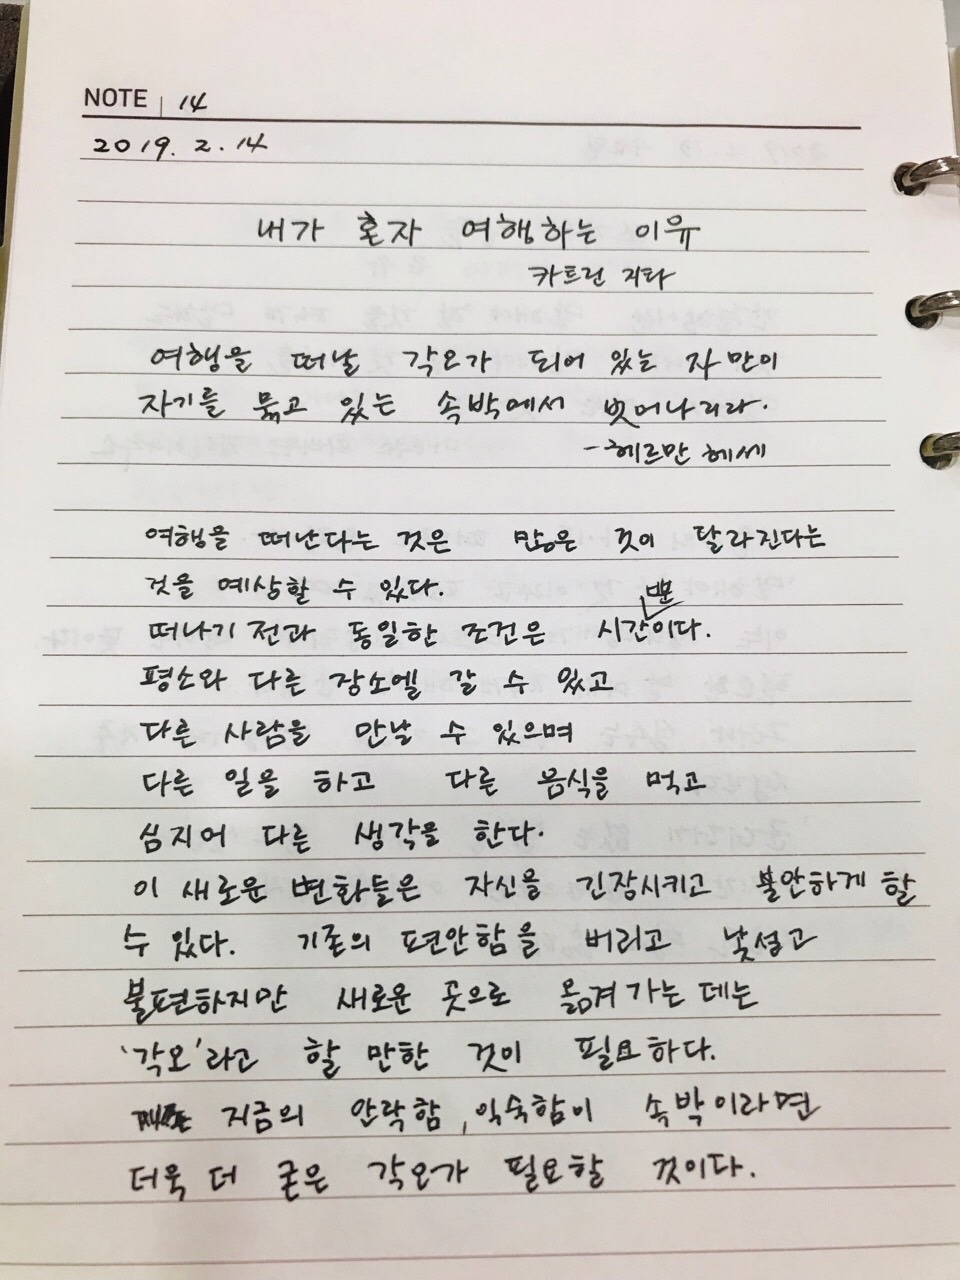 NOTE | 14
2019. 2. 14
내가 혼자 여행하는 이유
카트린 지타
여행을 떠날 각오가 되어 있는 자만이
자기를 묶고 있는 속박에서 벗어나리라.
-헤르만 헤세
여행을 떠난다는 것은 많은 것이 달라진다는
것을 예상할 수 있다.
떠나기 전과 동일한 조건은 시간뿐이다.
평소와 다른 장소엘 갈 수 있고
다른 사람을 만날 수 있으며
다른 일을 하고 다른 음식을 먹고
심지어 다른 생각을 한다.
이 새로운 변화들은 자신을 긴장시키고 불안하게 할
수 있다. 기존의 편안함을 버리고 낯설고
불편하지만 새로운 곳으로 옮겨가는 데는
'각오'라고 할 만한 것이 필요하다.
지금의 안락함, 익숙함이 속박이라면
더욱 더 굳은 각오가 필요할 것이다.